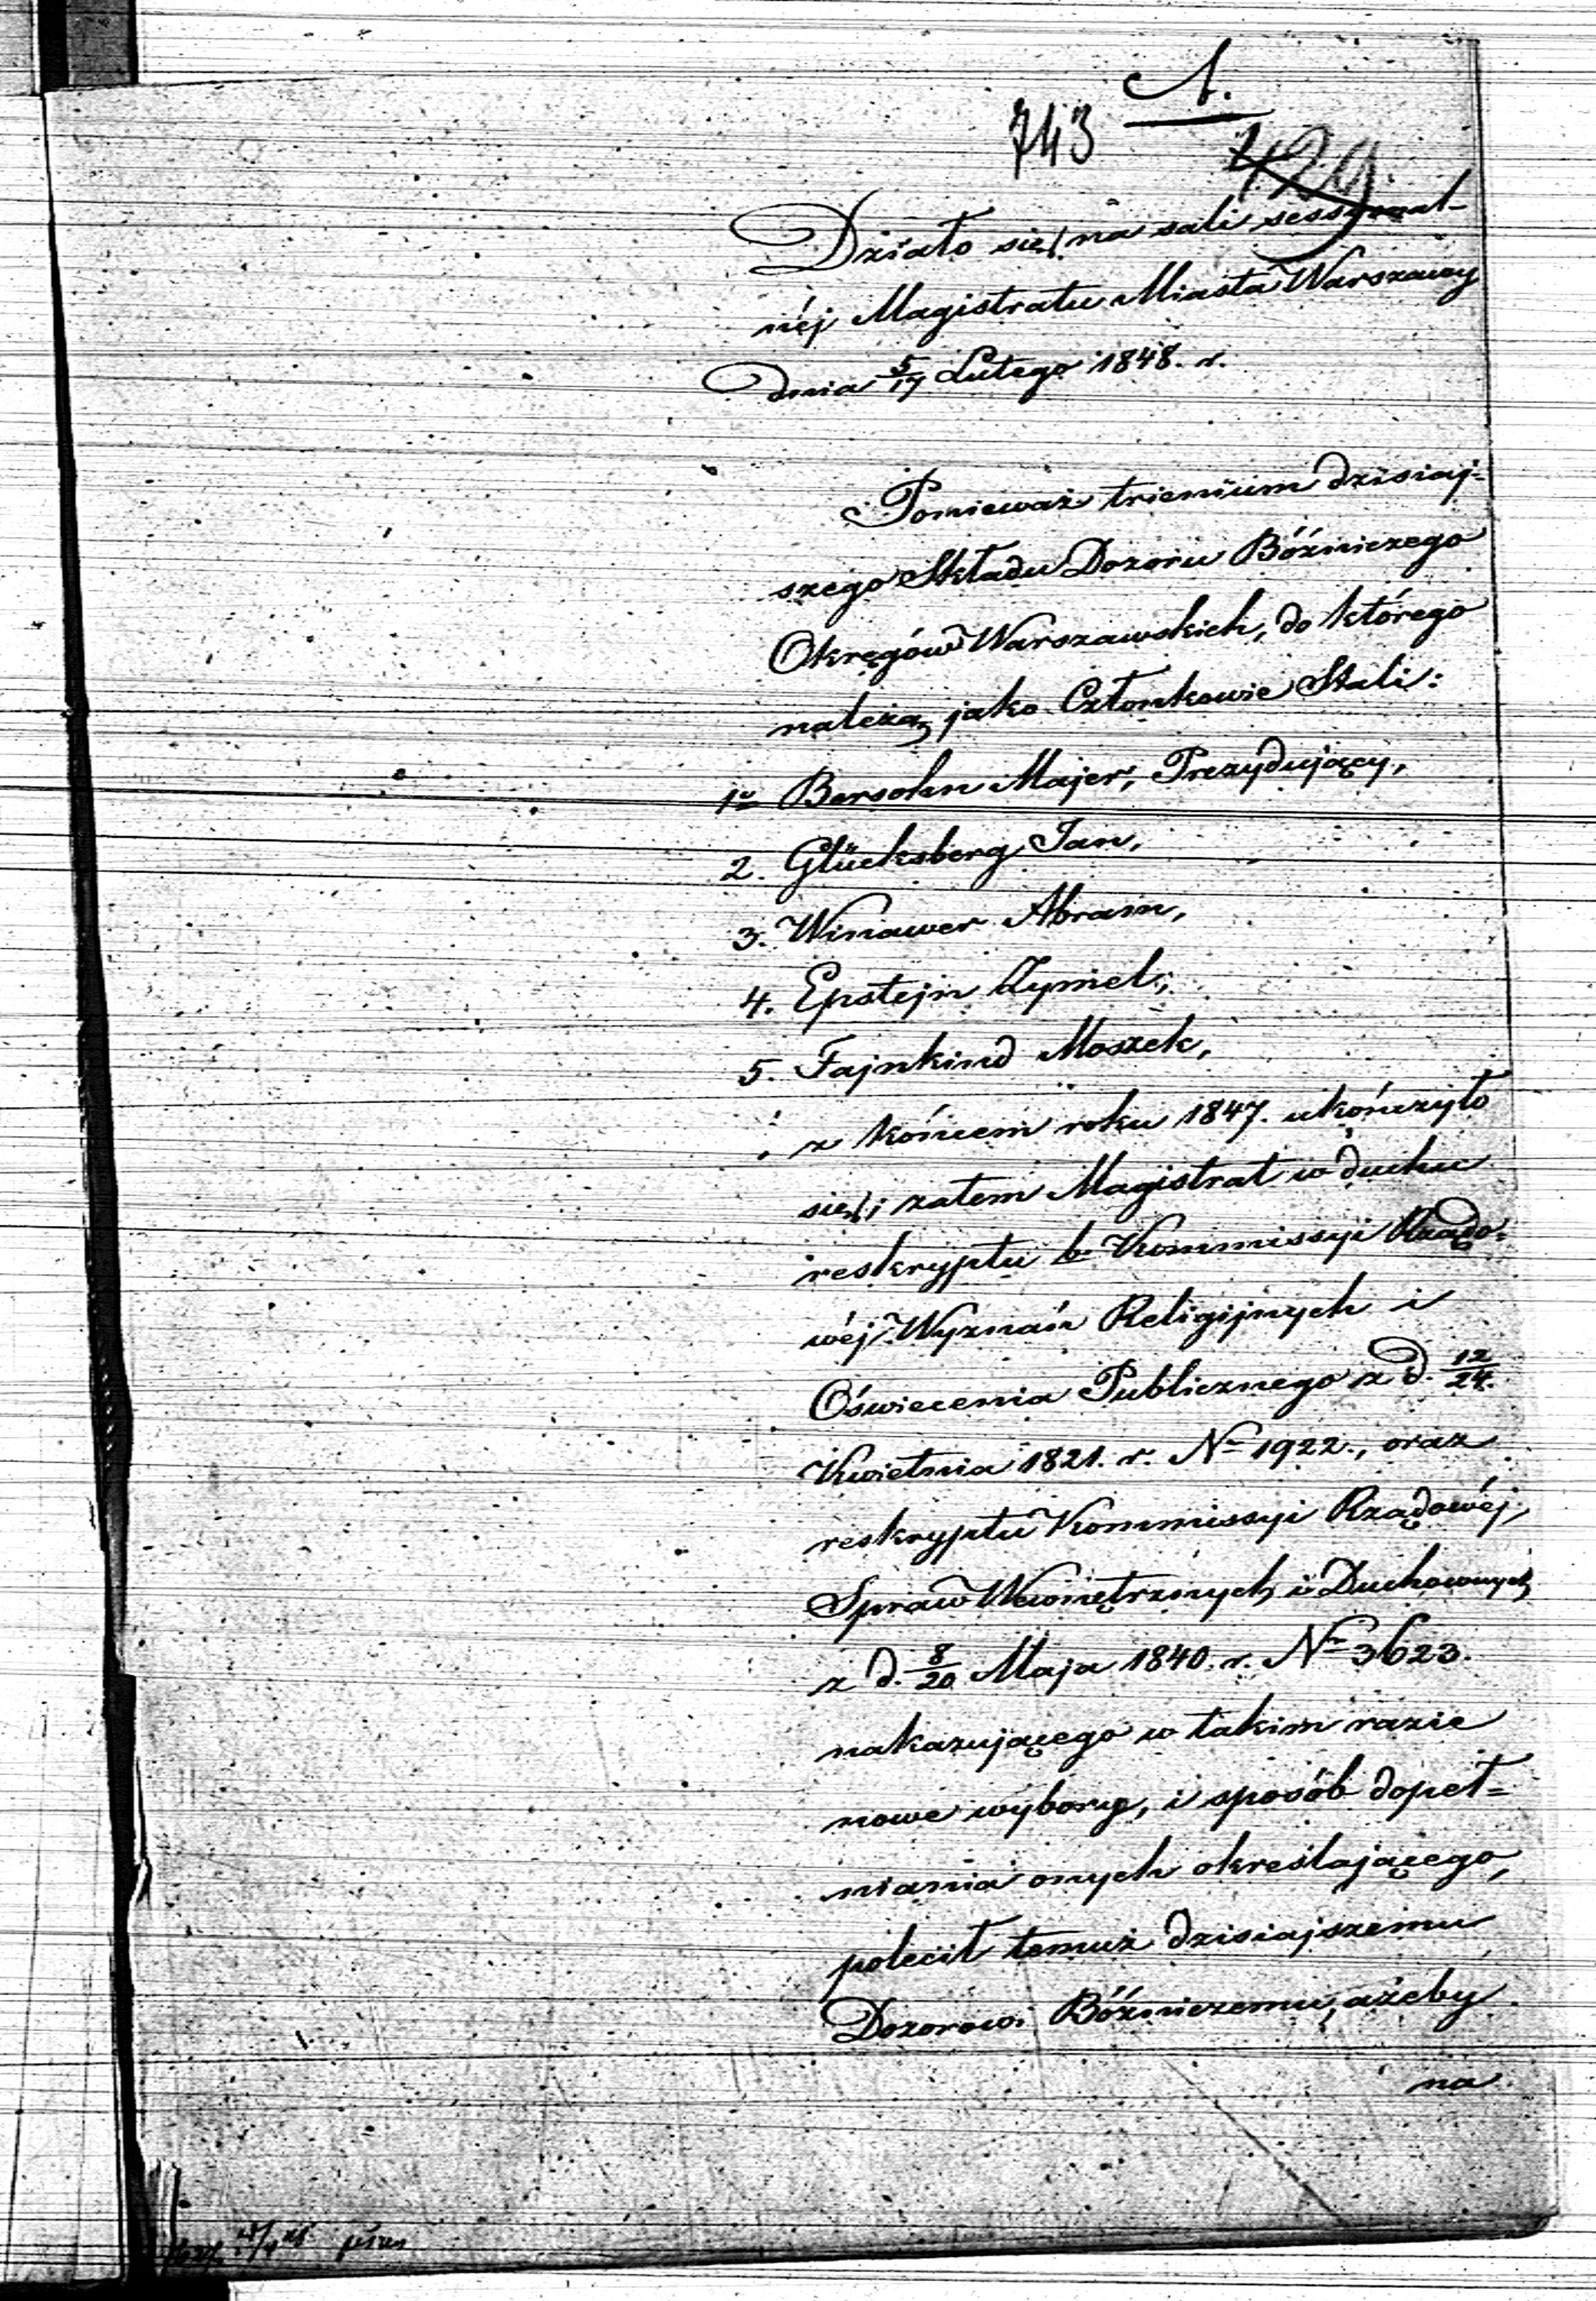 A.
743
429.
Działo się na sali sessyonal-
néj Magistratu Miasta Warszawy
dnia 5/17 Lutego 1848. r.
Ponieważ triennium dzisiaj-
szego Składu Dozoru Bóżniczego
Okręgów Warszawskich, do którego
należą, jako Członkowie Stali:
1o Bersohn Majer, Prezydujący,
2. Glücksberg Jan,
3. Winawer Abram,
4. Epstejn Zymel,
5. Fajnkind Moszek,
z końcem roku 1847. ukończyło
się; zatem Magistrat w duchu
reskryptu b. Kommissyi Rządo-
wéj Wyznań Religijnych i
Oświecenia Publicznego z d. 12/24.
Kwietnia 1821. r. No 1922., oraz
reskryptu Kommissyi Rządowéj
Spraw Wewnętrznych i Duchownych
z d. 8/20 Maja 1840. r. No 3623.
nakazującego w takim razie
nowe wybory, i sposób dopeł=
niania onych określającego,
polecił temuż dzisiajszemu
Dozorowi Bóżniczemu, ażeby
na